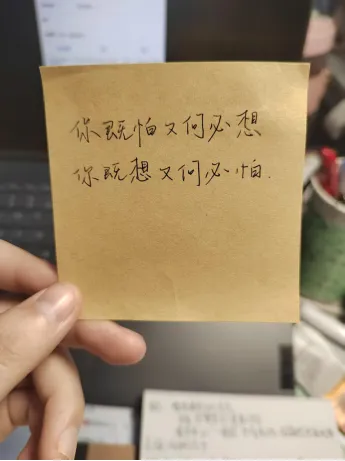 你既怕又何必想
你既想又何必怕.